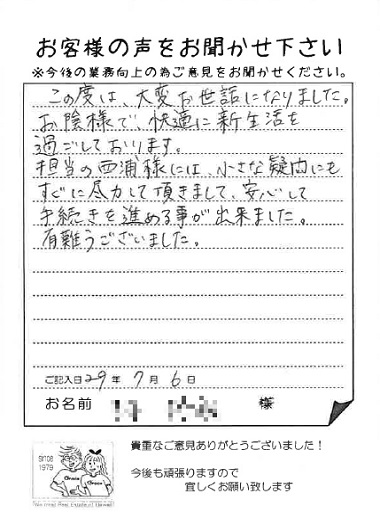 お客様の声をお聞かせ下さい
※今後の業務向上の為ご意見をお聞かせください。
この度は、大変お世話になりました。
お陰様で、快適に新生活を
過ごしております。
担当の西浦様には、小さな疑問にも
すぐに尽力して頂きまして、安心して
手続きを進める事が出来ました。
有難うございました。
ご記入日29年7月6日
お名前 様
SINCE
1979
貴重なご意見ありがとうございました！
今後も頑張りますので
宜しくお願い致します